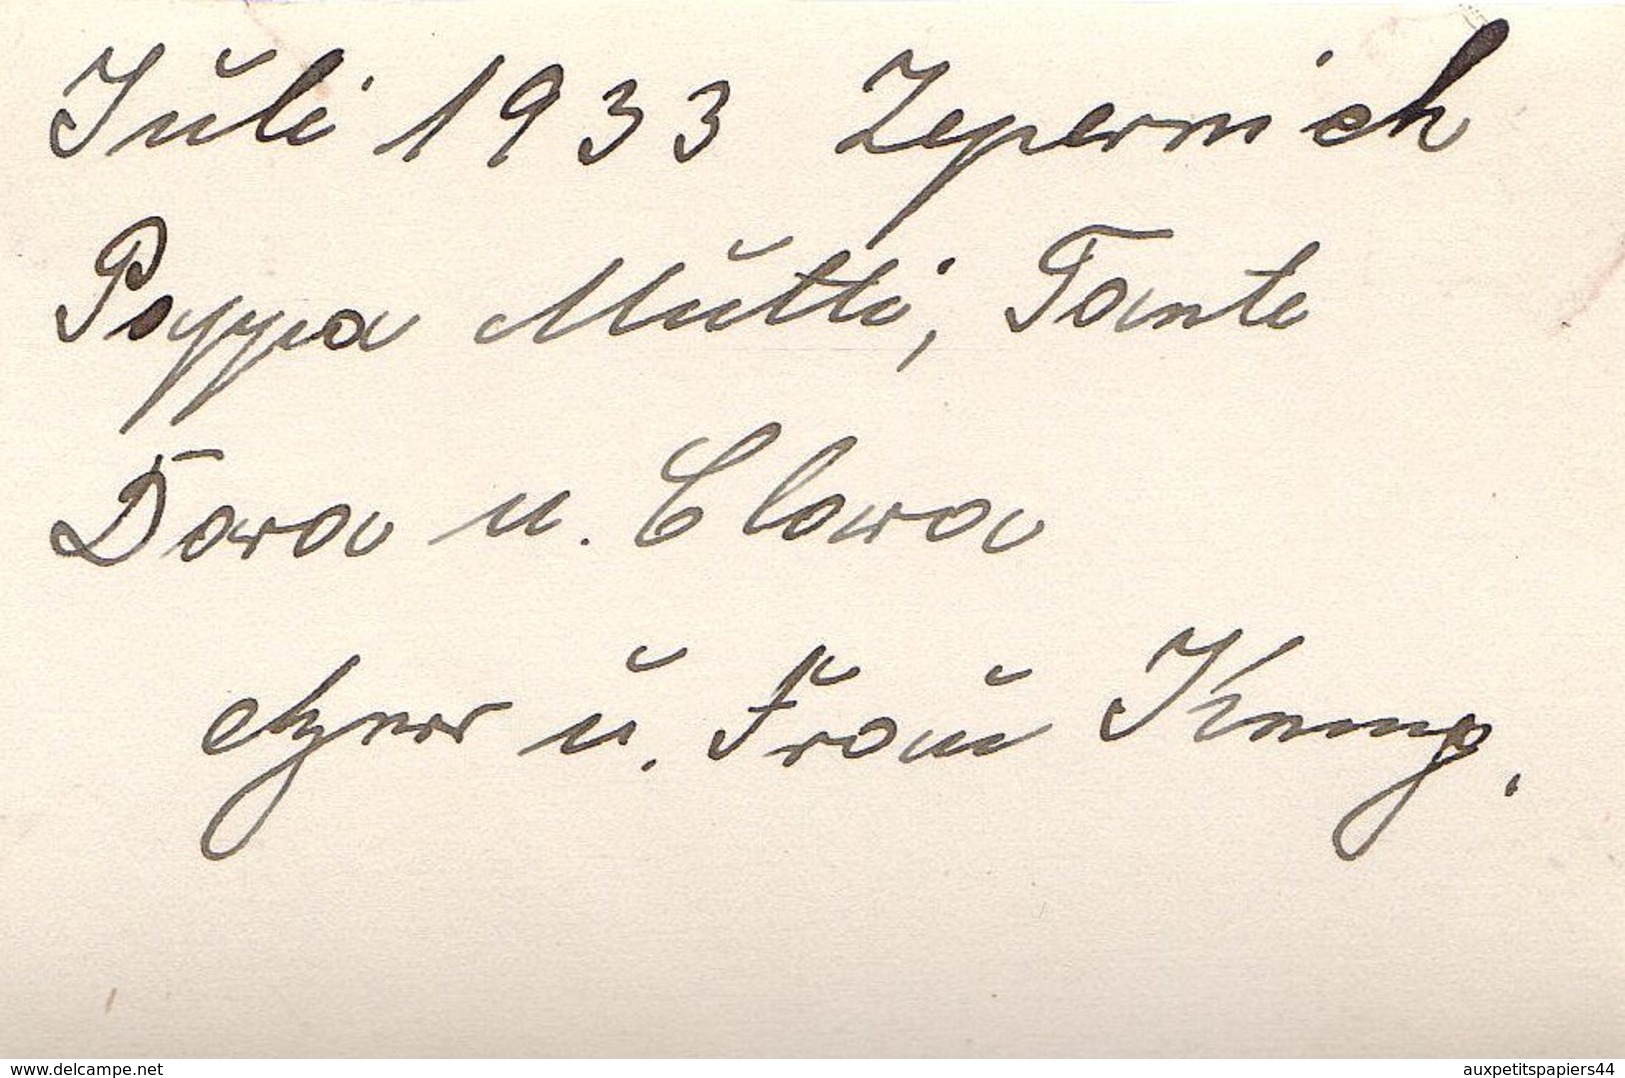 Juli 1933 Zepernick
Pappa Mutti, Tante
Dora u. Clara
Herr u. Frau Kemp.
www.delcampe.net
auxpetitspapiers44